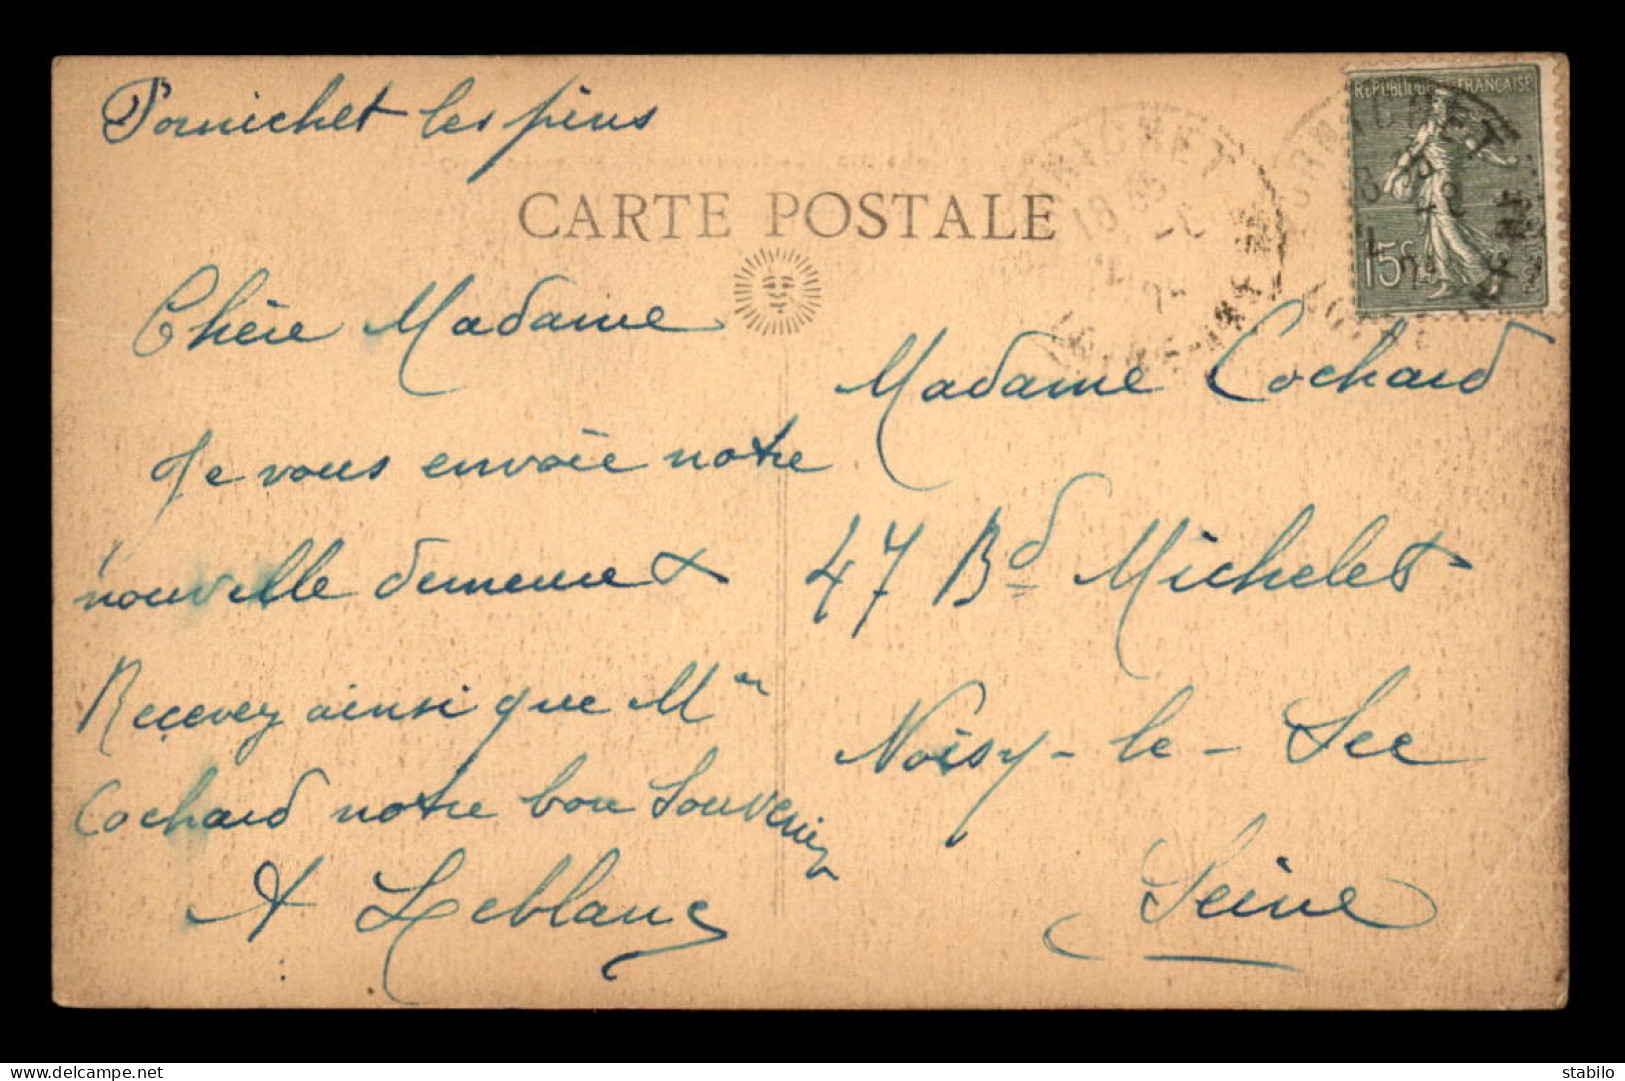 Pornichet les pins
CARTE POSTALE
Chère Madame
Je vous envoie notre
nouvelle demeure
Recevez ainsi que Mr
Cochard notre bon souvenir
A Leblanc
REPUBLIQUE FRANÇAISE
15c
Madame Cochard
47 Bd Michelet
Noisy-le-Sec
Seine
delcampe.net
stabilo